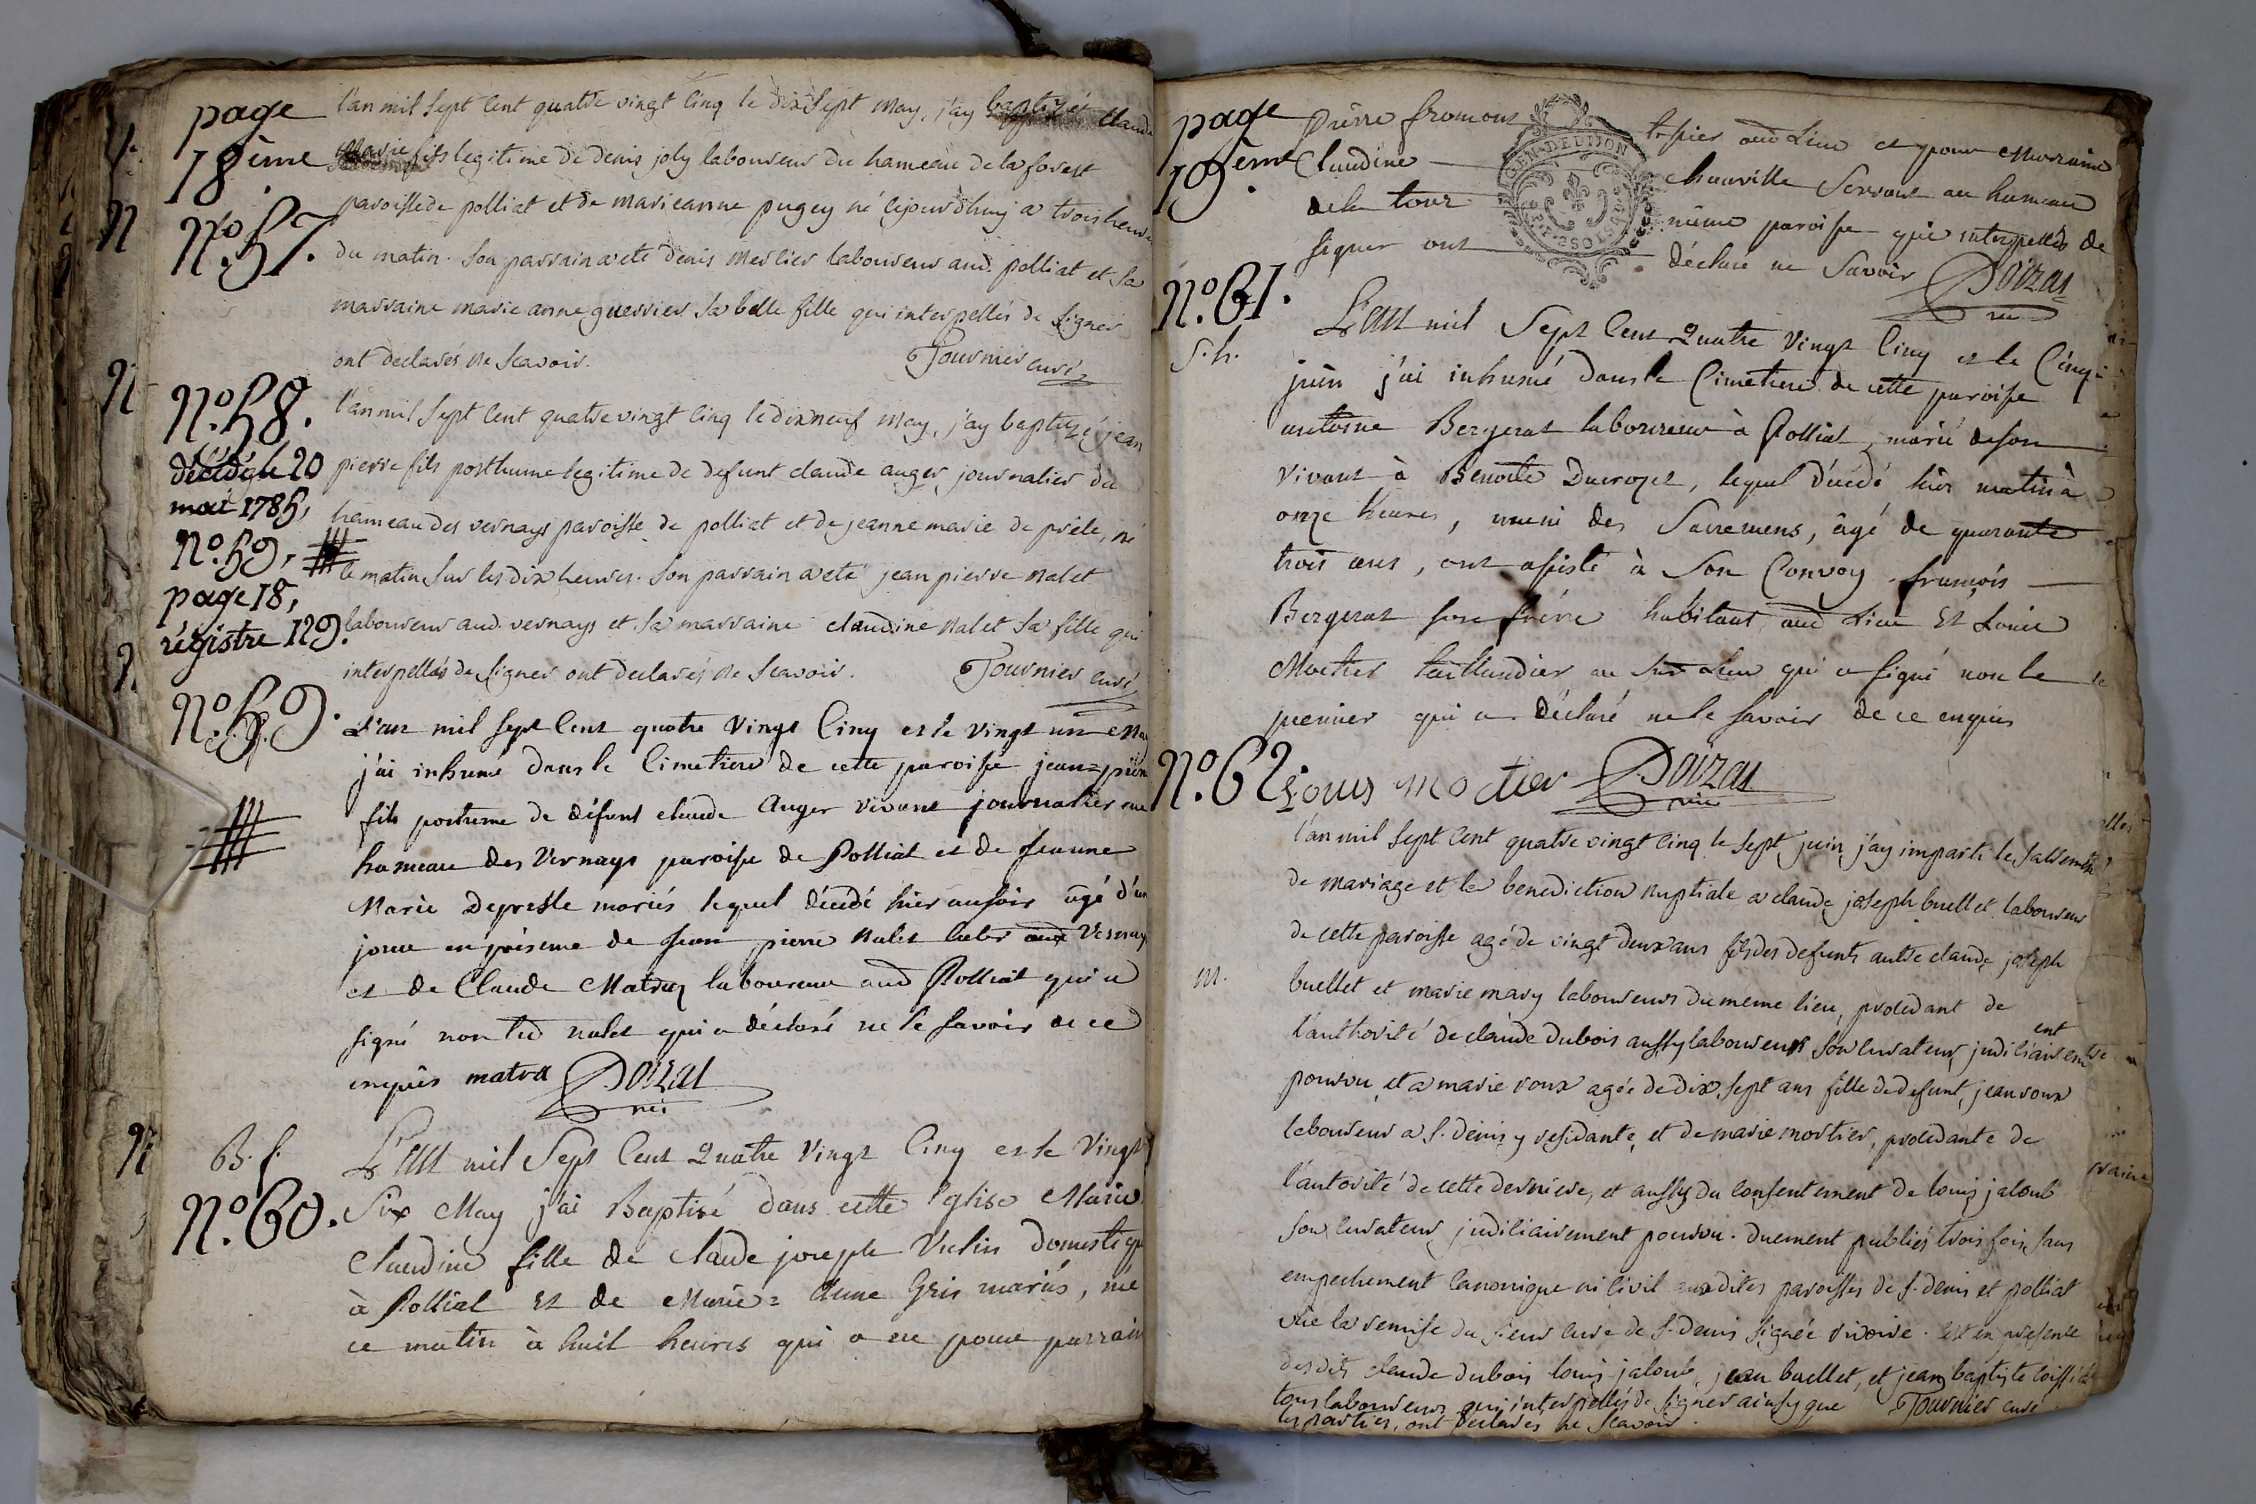 page
18ème
l'an mil sept cent quatre vingt cinq le dix sept may, j'ay baptizé claude
marie fils legitime de denis joly laboureur du hameau de la forest
N.º 57.
paroisse de polliat et de marieanne pugey né cejourdhuy a trois heures
du matin. son parrain a eté denis merlier laboureur aud. polliat et sa
marraine marie anne guerrier sa belle fille qui interpellés de signer
ont declarés ne scavoir. Tournier curé
N.º 58.
l'an mil sept cent quatre vingt cinq le dix neuf may, j'ay baptizé jean
décédé le 20
pierre fils posthume legitime de defunt claude auger, journalier du
mai 1785,
hameau des vernays paroisse de polliat et de jeanne marie de prêle, né
N.º 59,
le matin sur les dix heures. son parrain a eté jean pierre nalet
page 18,
laboureur aud. vernays et sa marraine claudine nalet sa fille qui
régistre 129.
interpellés de signer ont declarés ne scavoir. Tournier curé
N.º 59.
L'an mil sept cent quatre vingt cinq et le vingt un may
j'ai inhumé dans le cimetiere de cette paroisse jean=pierre
fils postume de défunt claude Auger vivant journalier au
hameau des Vernays paroisse de Polliat et de jeanne
Marie Depresle mariés lequel décédé hier au soir âgé d'un
jour en présence de jean pierre nalet aud Vernay
et de Claude Matray laboureur aud Polliat qui a
signé non led nalet qui a déclaré ne le savoir de ce
enquis matra Doizat
B. f.
N.º 60.
L'an mil Sept Cent Quatre Vingt Cinq et le Vingt
Six May j'ai Baptisé dans cette Eglise Marie
Claudine fille de Claude joseph Vulin domestique
à Polliat et de Marie= Anne Gris mariés, née
ce matin à huit heures qui a eu pour parrain
page
19ème
Pierre fromont aud Lieu et pour Marraine
Claudine Chauville Servant au hameau
de la tour même paroisse qui interpellés de
signer ont déclaré ne Savoir Doizat
GEN. DE DIJON
N.º 61.
S. h.
L'an mil Sept Cent Quatre Vingt Cinq et le Cinq
juin j'ai inhumé dans le Cimetiere de cette paroisse
antoine Bergerat laboureur à Polliat, marié de son
vivant à Benoite Ducroyet, lequel décédé hier matin à
onze heures, muni des Sacremens, âgé de quarante
trois ans, ont assisté à Son Convoy françois
Bergerat son frère habitant aud Lieu Et Louis
Moctier taillandier au Sus Lieu qui a signé non le
premier qui a déclaré ne le savoir de ce enquis
N.º 62
Louis moctier Doizat
l'an mil sept cent quatre vingt cinq le sept juin j'ay imparti le sacrement
de mariage et la benediction nuptiale a claude joseph buellet laboureur
de cette paroisse agé de vingt deux ans fils des defunts autre claude joseph
m.
buellet et marie mary laboureurs du meme lieu, procedant de
l'authorité de claude dubois aussy laboureur son curateur judiciairement
pourvu, et a marie roux agée de dix sept ans fille de defunt jean roux
laboureur a s. denis y residante, et de marie mortier, procedante de
l'autorité de cette derniere, et aussy du consentement de louis jaloub
son curateur judiciairement pourvu. duement publiés trois fois sans
empechement canonique ni civil auxdites paroisses de s. denis et polliat
vüe la remise du sieur curé de s. denis signée rivoire. c'est en presence
desdits claude dubois louis jaloub, jean buellet, et jean baptiste
tous laboureurs qui interpellés de signer ainsy que Tournier curé
les parties, ont declarés ne scavoir.